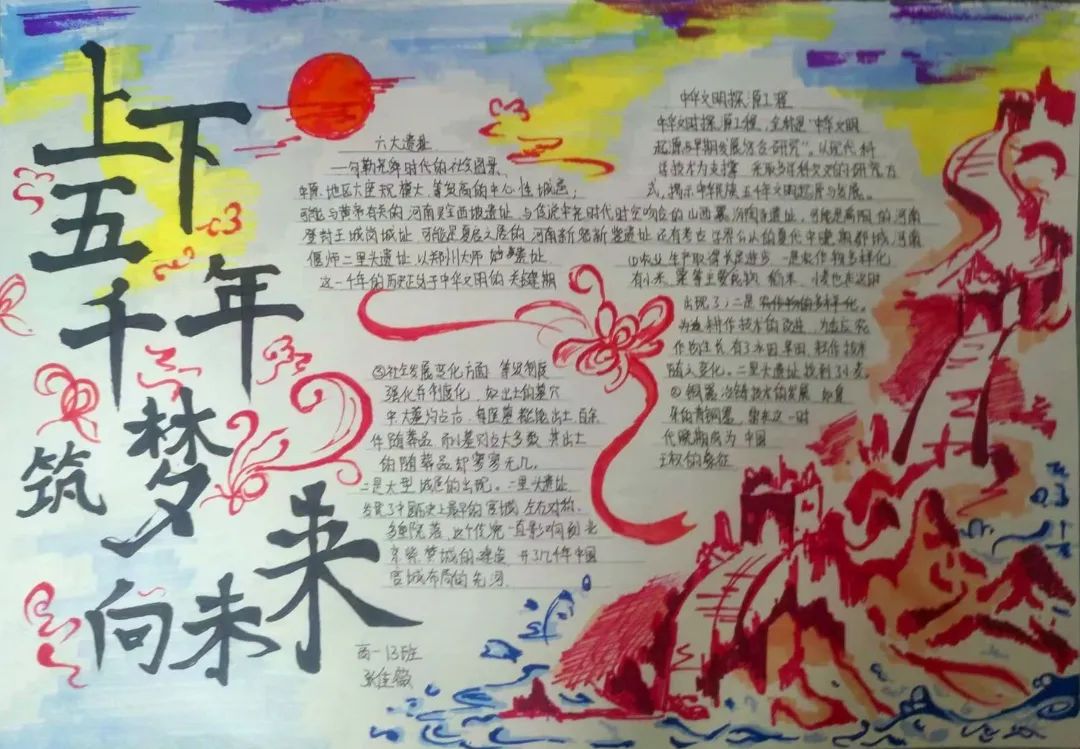 上下
五千年
筑梦
向未来
六大遗址
——勾勒尧舜时代的社会图景
中原地区大型规模大、等级高的中心性城邑：
可能与黄帝有关的河南灵宝西坡遗址、与传说中尧时代时空吻合的山西襄汾陶寺遗址、可能是禹阳的河南
登封王城岗城址、可能是夏启之居的河南新密新砦遗址还有考古世界公认的夏代中晚期都城河南
偃师二里头遗址、以郑州大师姑遗址
这一千年的历史正处于中华文明的关键期
中华文明探源工程
中华文明探源工程，全称是“中华文明
起源与早期发展综合研究”。以现代科
学技术为支撑 采取多学科交叉的研究方
式，揭示中华民族五千年文明起源与发展。
①农业生产取得长足进步 一是农作物多样化
有小米、粟等主要食物 稻米、小麦也在这时
出现了；二是农作物的多样化。
为耕作技术的改进
作物生长 有了水田 旱田、耕作技术
随之变化。二里头遗址找到了小麦。
②铜器冶铸技术的发展 如复
杂的青铜器 留来这一时
代晚期成为中国
王权的象征
③社会发展变化方面 等级制度
强化并制度化、如出土的墓穴
中大墓约占六 每座墓都能出土百余
件随葬品 而小墓则占大多数 其出土
的随葬品却寥寥无几。
二是大型城邑的出现。二里头遗址
发现了中国历史上最早的宫城 左右对称、
多重院落 这个传统一直影响到北
京紫禁城的建造 开了几千年中国
宫城布局的先河
高一13班
张佳薇